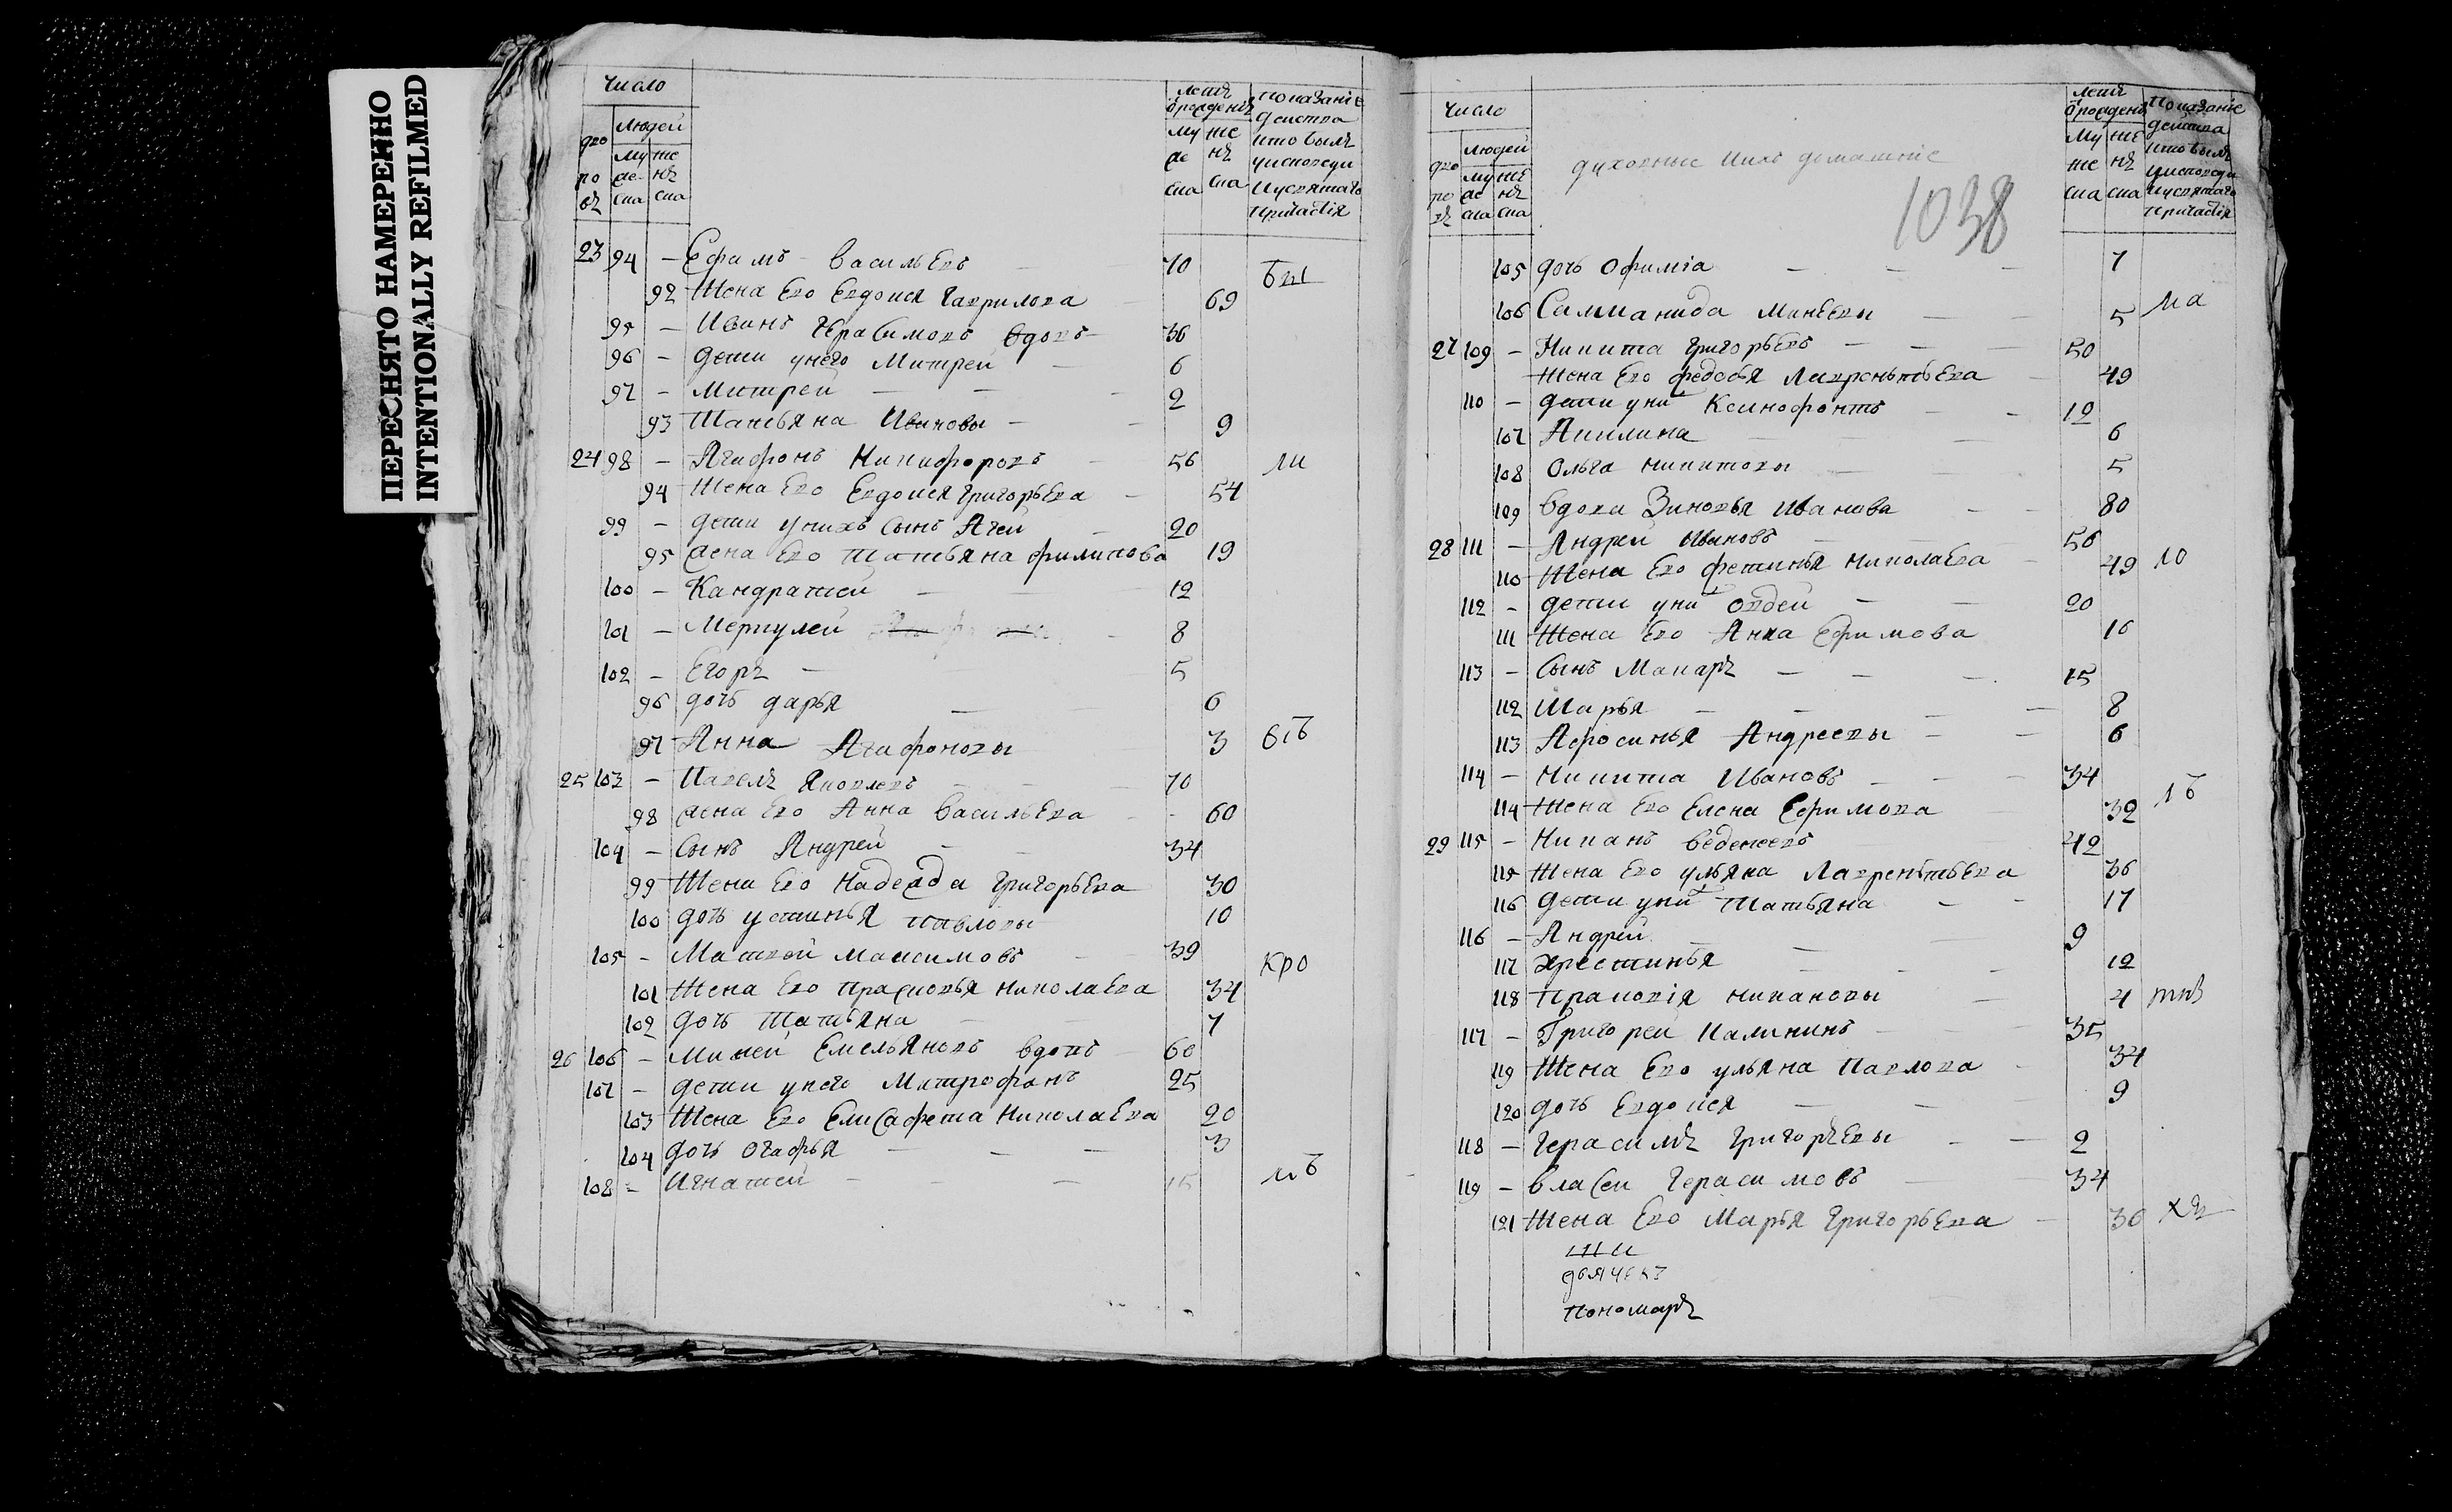 ПЕРЕСНЯТО НАМЕРЕННО
INTENTIONALLY REFILMED
Число
людей
дво ро въ
му же ска
же нъ ска
лета ѿрождения
му же ска
же нъ ска
показание действа кто былъ уисповеди исвятаго причастія
23 94 — Ефимъ васильевъ — 70
92 Жена Ево Евдокея гаврилова 69
95 — Иванъ Герасимовъ вдовъ — 36
96 — дети унего Митрей — 6
97 — Митрей — — 2
93 Татьяна Ивановы — 9
24 98 — Агафонъ Никифоровъ — 56
94 Жена Ево Евдокея григорьева — 54
99 — дети унихъ сынъ Агей 20
95 жена Ево татьяна филипова 19
100 — Кандратей — 12
101 — Меркулей — 8
102 — Егоръ — 5
96 дочь дарья — 6
97 Анна Агафоновы 3
25 103 — Павелъ Яковлевъ — 70
98 жена Ево Анна васильева — 60
104 — Сынъ Андрей — 34
99 Жена Ево Надежда григорьева 30
100 дочь устинья павловы 10
105 — Матвей максимовъ — 39
101 Жена Ево прасковья николаева 34
102 дочь Татьяна — 7
26 106 — Миней Емельяновъ вдовъ 60
107 — дети унего Митрофанъ 25
103 Жена Ево Елисафета Николаева 20
104 дочь огафья — — — 3
108 — Игнатей — — — 15
Число
людей
дво ро въ
му же ска
же нъ ска
духовные ихъ домашніе
1038
лета ѿрождения
му же ска
же нъ ска
показаніе действа кто былъ уисповеди исвятаго причастія
105 дочь Офиміа — — — 7
106 Саламанида Минеевы — — 5
27 109 — Никита григорьевъ — — 50
Жена Ево федосья Лаврентьева — 49
110 — дети уни Ксинофонтъ — — 12
107 Акилина — — — 6
108 Ольга никитовы — — 5
109 вдова Зиновья Иванова — — 80
28 111 — Андрей Ивановъ — — 56
110 Жена Ево фетинья николаева — 49
112 — дети уни Овдей — — 20
111 Жена Ево Анна Ефимова 16
113 — Сынъ Макаръ — — — 15
112 Марья — — — — 8
113 Афросинья Андреевы — — 6
114 — Никита Ивановъ — — — 34
114 Жена Ево Елена Ефимова 32
29 115 — Никанъ веденеевъ — — 42
115 Жена Ево ульяна Лаврентьева 36
116 дети уни Татьяна — — 17
116 — Андрей — — — 9
117 хрестинья — — — — 12
118 Прасковія никановы — 4
117 — Григорей Калининъ — 35
119 Жена Ево ульяна Павлова — 34
120 дочь Евдокея — — — 9
118 — Герасимъ григорьевы — — 2
119 — власей Герасимовъ — 34
121 Жена Ево Марья григорьева — 30
дьячекъ
пономарь